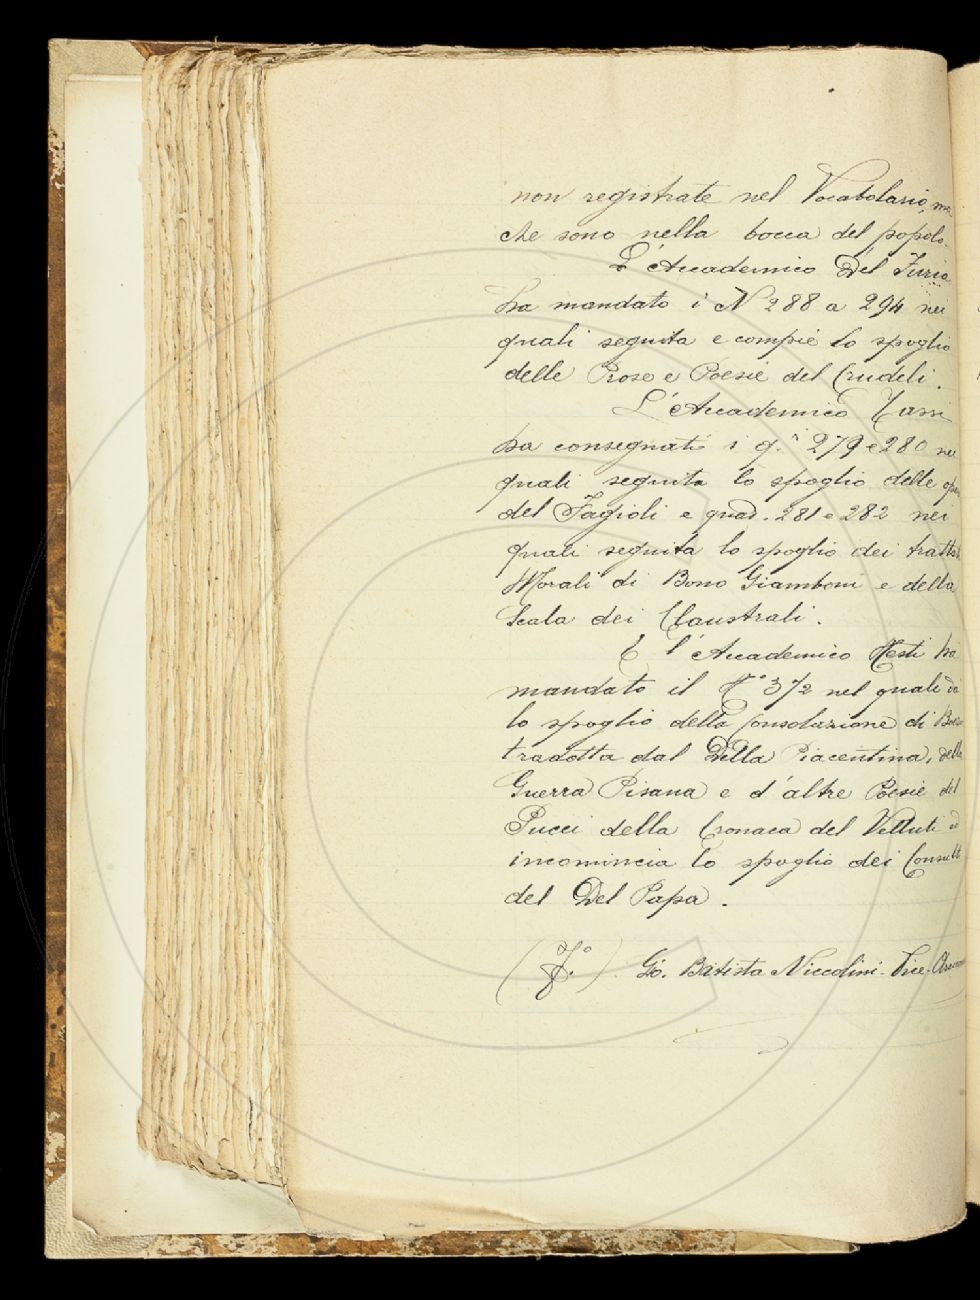 non registrate nel Vocabolario, ma
che sono nella bocca del popolo.
L'Accademico Del Furia
ha mandato i N 288 a 294 nei
quali seguita e compiè lo spoglio
delle Prose e Poesie del Crudeli.
L'Accademico
ha consegnati i q.ⁱ 279 e 280 nei
quali seguita lo spoglio delle
del Fagioli e quad. 281 e 282 nei
quali seguita lo spoglio dei trattati
Morali di Bono Giamboni e della
Scala dei Claustrali.
E l'Accademico ha
mandato il 372 nel quale
lo spoglio della Consolazione di
tradotta dal Della Piacentina, della
Guerra Pisana e d'altre Poesie del
Pucci della Cronaca del Velluti
incomincia lo spoglio dei Consulti
del Del Papa.
(F.°) Gio. Batista Niccolini Vice